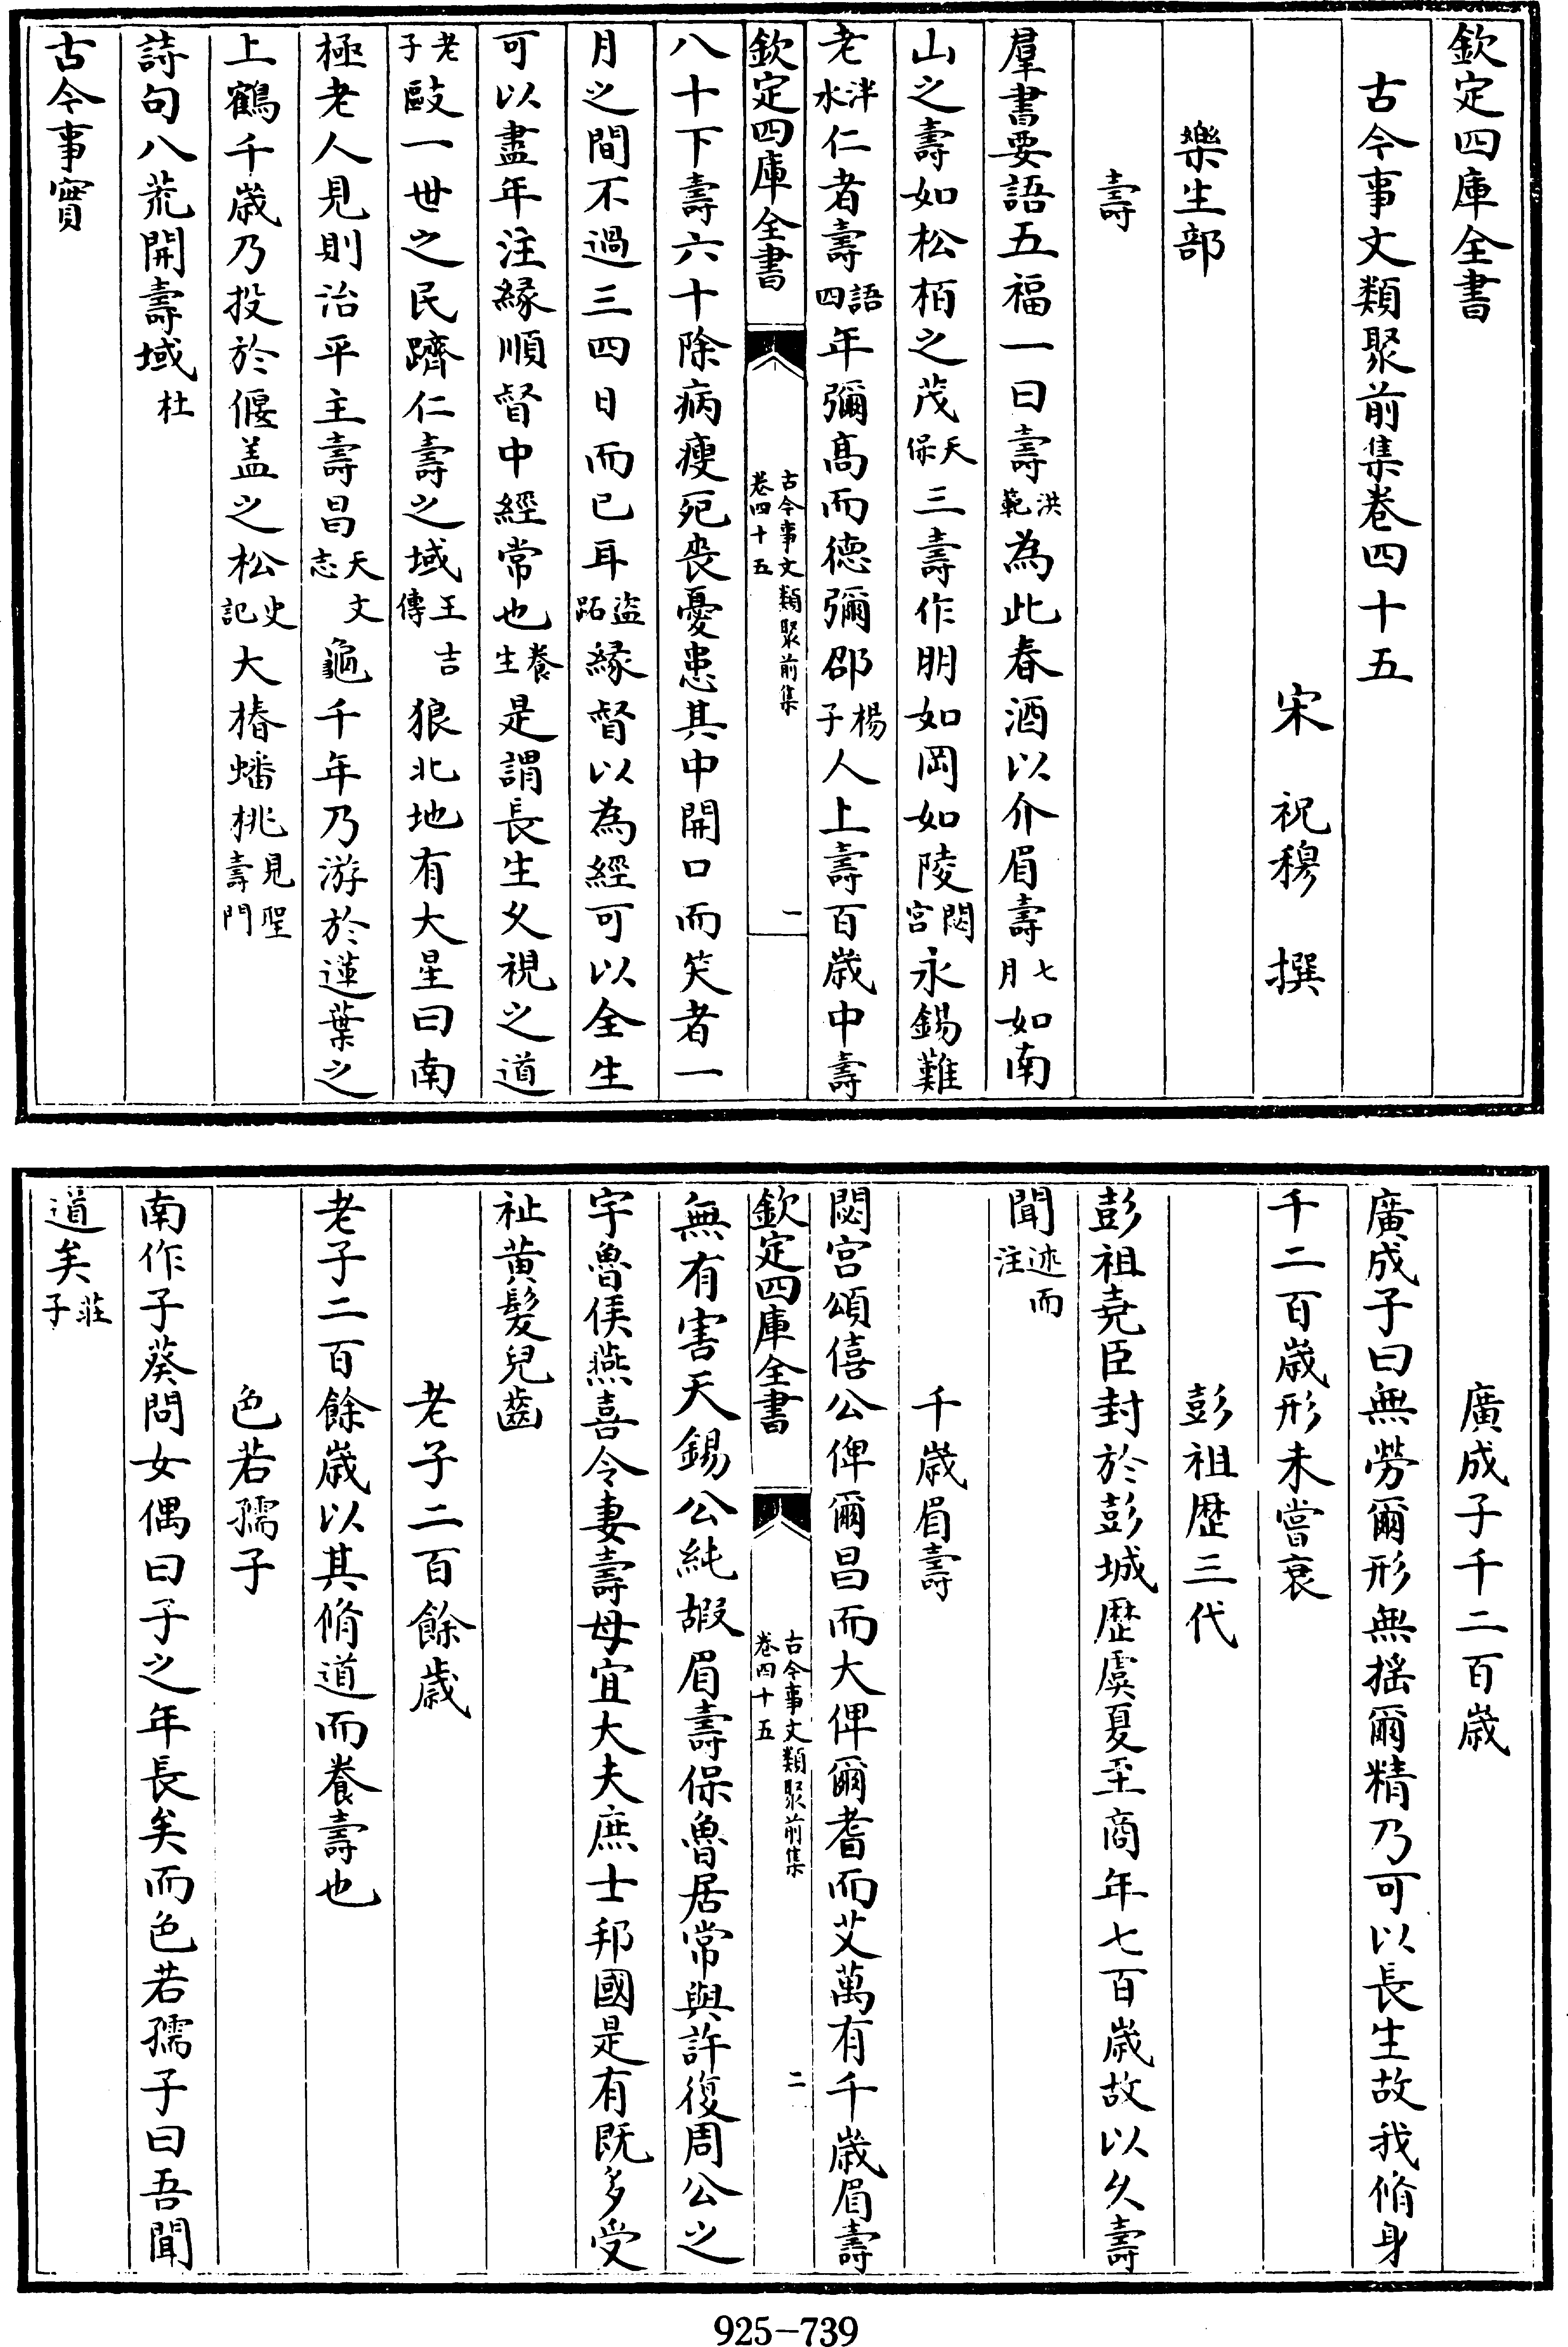 欽定四庫全書
古今事文類聚前集卷四十五
宋 祝穆 撰
樂生部
壽
羣書要語五福一曰壽洪範為此春酒以介眉壽七月如南
山之壽如松栢之茂天保三壽作朋如岡如陵閟宮永錫難
老泮水仁者壽語四年彌髙而徳彌邵楊子人上壽百歳中壽
欽定四庫全書
古今事文類聚前集
卷四十五
一
八十下壽六十除病瘦死丧憂患其中開口而笑者一
月之間不過三四日而已耳盜跖緣督以為經可以全生
可以盡年注緣順督中經常也養生是謂長生久視之道
老子敺一世之民躋仁壽之域王吉傳狼北地有大星曰南
極老人見則治平主壽昌天文志龜千年乃游於蓮葉之
上鶴千歳乃投於偃盖之松史記大椿蟠桃見聖壽門
詩句八荒開壽域杜
古今事實
廣成子千二百歳
廣成子曰無勞爾形無搖爾精乃可以長生故我脩身
千二百歳形未嘗衰
彭祖歴三代
彭祖堯臣封於彭城歴虞夏至商年七百歳故以久壽
聞述而注
千歳眉壽
閟宫頌僖公俾爾昌而大俾爾耆而艾萬有千歳眉壽
欽定四庫全書
古今事文類聚前集
卷四十五
二
無有害天錫公純嘏眉壽保魯居常與許復周公之
宇魯侯燕喜令妻壽母宜大夫庶士邦國是有既多受
祉黄髮兒齒
老子二百餘歲
老子二百餘歳以其脩道而養壽也
色若孺子
南作子葵問女偶曰子之年長矣而色若孺子曰吾聞
道矣莊子
925-739